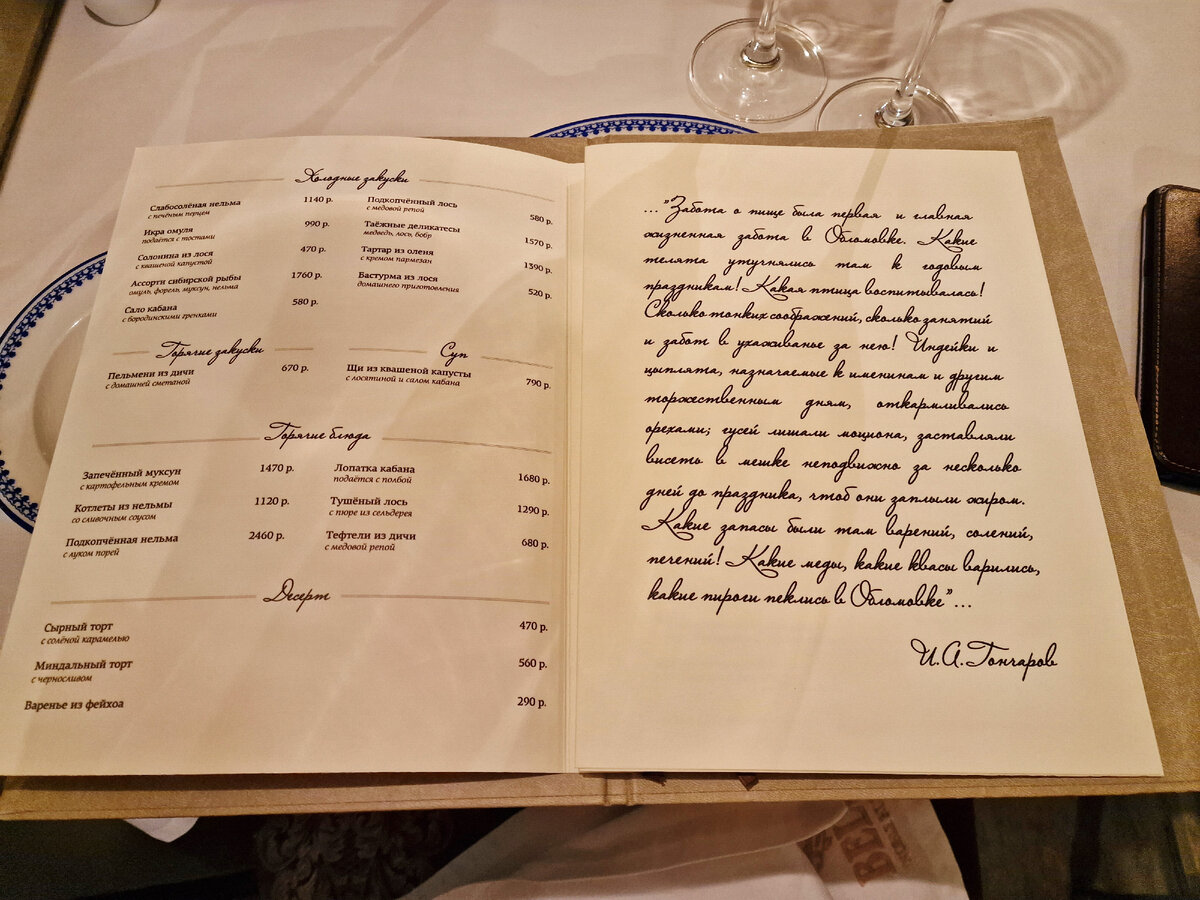 Холодные закуски
Слабосолёная нельма 1140 р.
с печёным перцем
Икра омуля 990 р.
подаётся с тостами
Солонина из лося 470 р.
с квашеной капустой
Ассорти сибирской рыбы 1760 р.
омуль, форель, муксун, нельма
Сало кабана 580 р.
с бородинскими гренками
Подкопчённый лось
с медовой репой 580 р.
Таёжные деликатесы
медведь, лось, бобр 1570 р.
Тартар из оленя
с кремом пармезан 1390 р.
Бастурма из лося
домашнего приготовления 520 р.
Горячие закуски
Пельмени из дичи 670 р.
с домашней сметаной
Суп
Щи из квашеной капусты
с лосятиной и салом кабана 790 р.
Горячие блюда
Запечённый муксун 1470 р.
с картофельным кремом
Котлеты из нельмы 1120 р.
со сливочным соусом
Подкопчённая нельма 2460 р.
с луком порей
Лопатка кабана
подаётся с полбой 1680 р.
Тушёный лось
с пюре из сельдерея 1290 р.
Тефтели из дичи
с медовой репой 680 р.
Десерт
Сырный торт 470 р.
с солёной карамелью
Миндальный торт 560 р.
с черносливом
Варенье из фейхоа 290 р.
..."Забота о пище была первая и главная
жизненная забота в Обломовке. Какие
телята утучнялись там к годовым
праздникам! Какая птица воспитывалась!
Сколько тонких соображений, сколько занятий
и забот в ухаживанье за нею! Индейки и
цыплята, назначаемые к именинам и другим
торжественным дням, откармливались
орехами; гусей лишали моциона, заставляли
висеть в мешке неподвижно за несколько
дней до праздника, чтоб они заплыли жиром.
Какие запасы были там варений, солений,
печений! Какие меды, какие квасы варились,
какие пироги пеклись в Обломовке"...
И.А.Гончаров